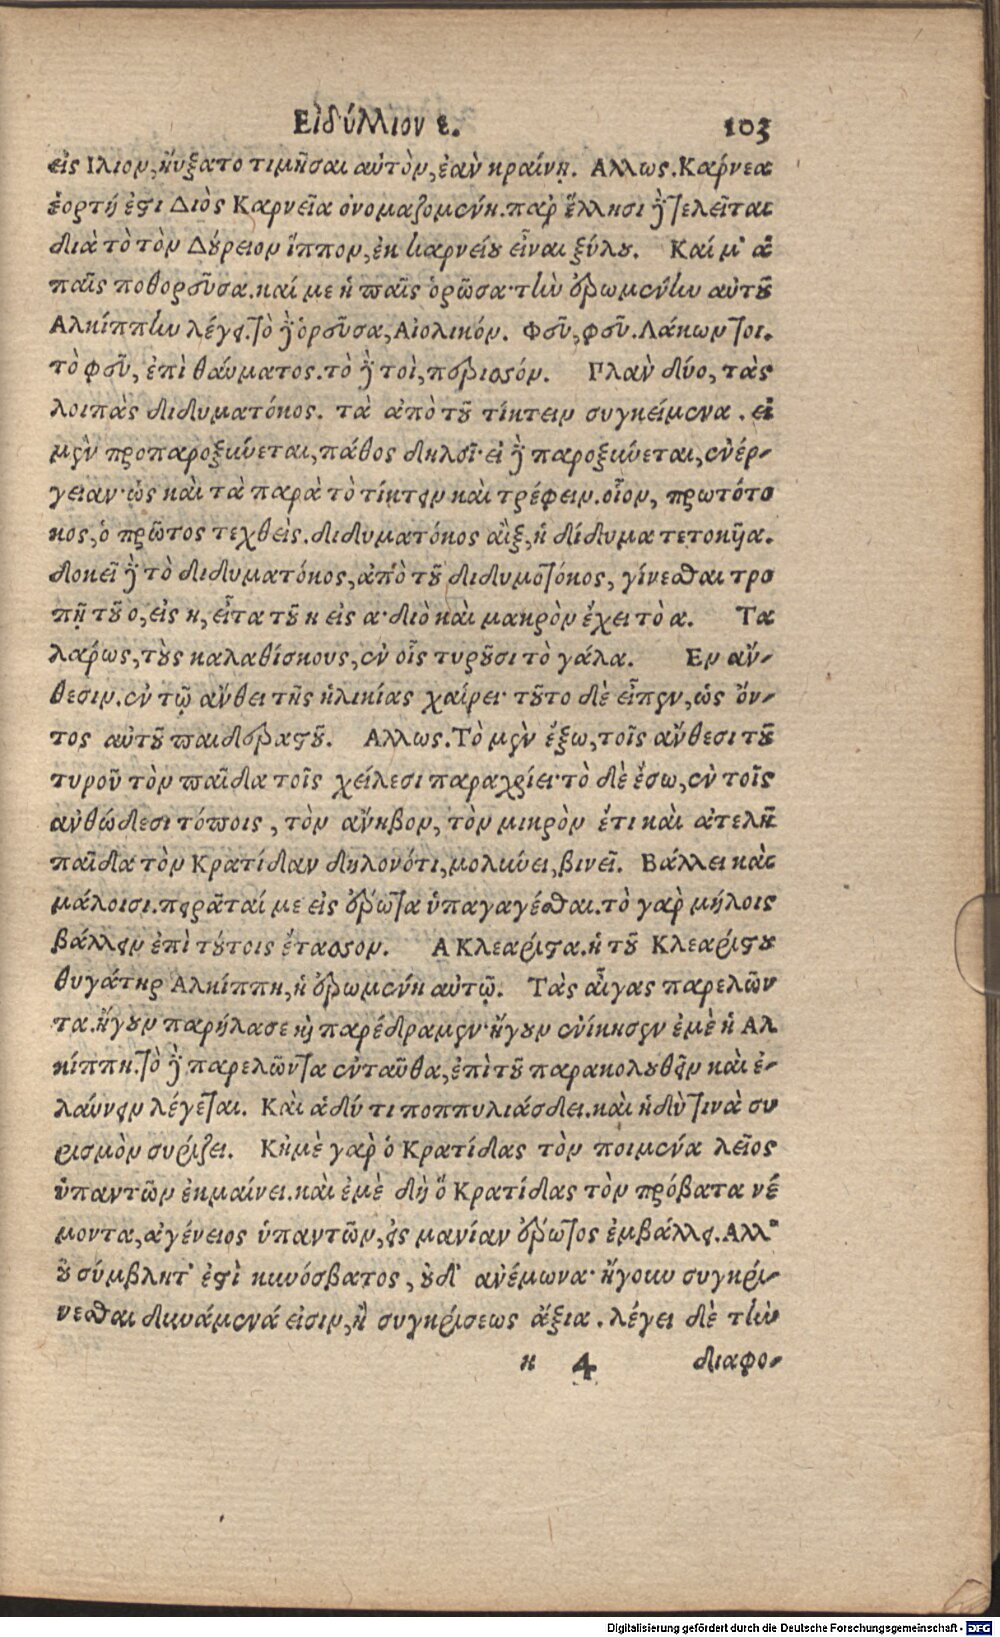 Εἰδύλλιον ε. 103
εἰς Ιλιον, ηὔξατο τιμῆσαι αὐτὸν, ἐὰν κραίνῃ. Αλλως. Κάρνεα
ἑορτή ἐστι Διὸς Καρνεῖα ὀνομαζομένη. παρ' ἕλλησι ἢ τελεῖται
διὰ τὸ τὸν Δύρειον ἵππον, ἐκ καρνείου εἶναι ξύλου. Καί μ' ἁ
παῖς ποθορεῦσα. καί με ἡ παῖς ὁρῶσα· τὴν ἐρωμένην αὐτοῦ
Αλκίππην λέγει. τὸ δὲ ὁρεῦσα, Αἰολικόν. Φεῦ, φεῦ. Λάκων τοι.
τὸ φεῦ, ἐπὶ θαύματος. τὸ δὲ τοὶ, περισσόν. Πλὰν δύο, τὰς
λοιπὰς διδυματόκος. τὰ ἀπὸ τοῦ τίκτειν συγκείμενα. εἰ
μὲν προπαροξύνεται, πάθος δηλοῖ· εἰ δὲ παροξύνεται, ἐνέρ-
γειαν· ὡς καὶ τὰ παρὰ τὸ τίκτειν καὶ τρέφειν. οἷον, πρωτότο
κος, ὁ πρῶτος τεχθεὶς. διδυματόκος αἲξ, ἡ δίδυμα τετοκῦα.
δοκεῖ δὲ τὸ διδυματόκος, ἀπὸ τοῦ διδυμοτόκος, γίνεσθαι τρο
πῇ τοῦ ο, εἰς η, εἶτα τοῦ η εἰς α· διὸ καὶ μακρὸν ἔχει τὸ α. Τα
λάρως, τοὺς καλαθίσκους, ἐν οἷς τυροῦσι τὸ γάλα. Εν ἄν-
θεσιν. ἐν τῷ ἄνθει τῆς ἡλικίας χαίρει· τοῦτο δὲ εἶπεν, ὡς ὄν-
τος αὐτοῦ παιδεραστοῦ. Αλλως. Τὸ μὲν ἔξω, τοῖς ἄνθεσι τοῦ
τυροῦ τὸν παῖδα τοῖς χείλεσι παραχρίει· τὸ δὲ ἔσω, ἐν τοῖς
ἀνθώδεσι τόποις, τὸν ἄνηβον, τὸν μικρὸν ἔτι καὶ ἀτελῆ
παῖδα τὸν Κρατίδαν δηλονότι, μολύνει, βινεῖ. Βάλλει καὶ
μάλοισι. πειρᾶταί με εἰς ἔρωτα ὑπαγαγέσθαι. τὸ γὰρ μήλοις
βάλλειν ἐπὶ τούτοις ἔτασσον. Α Κλεαρίστα. ἡ τοῦ Κλεαρίστου
θυγάτηρ Αλκίππη, ἡ ἐρωμένη αὐτῷ. Τὰς αἶγας παρελῶν
τα. ἤγουν παρήλασε καὶ παρέδραμεν· ἤγουν ἐνίκησεν ἐμὲ ἡ Αλ
κίππη. τὸ δὲ παρελῶντα ἐνταῦθα, ἐπὶ τοῦ παρακολουθεῖν καὶ ἐ-
λαύνειν λέγεται. Καὶ ἁδύ τι ποππυλιάσδει. καὶ ἡδὺ τινὰ συ
ρισμὸν συρίζει. Κἠμὲ γὰρ ὁ Κρατίδας τὸν ποιμένα λεῖος
ὑπαντῶν ἐκμαίνει. καὶ ἐμὲ δὴ ὅ Κρατίδας τὸν πρόβατα νέ
μοντα, ἀγένειος ὑπαντῶν, εἰς μανίαν ἔρωτος ἐμβάλλει. Αλλ'
οὐ σύμβλητ' ἐστὶ κυνόσβατος, οὐδ' ἀνέμωνα· ἤγουν συγκρί-
νεσθαι δυνάμενά εἰσιν, ἢ συγκρίσεως ἄξια. λέγει δὲ τὴν
κ 4 διαφο-
Digitalisierung gefördert durch die Deutsche Forschungsgemeinschaft - DFG